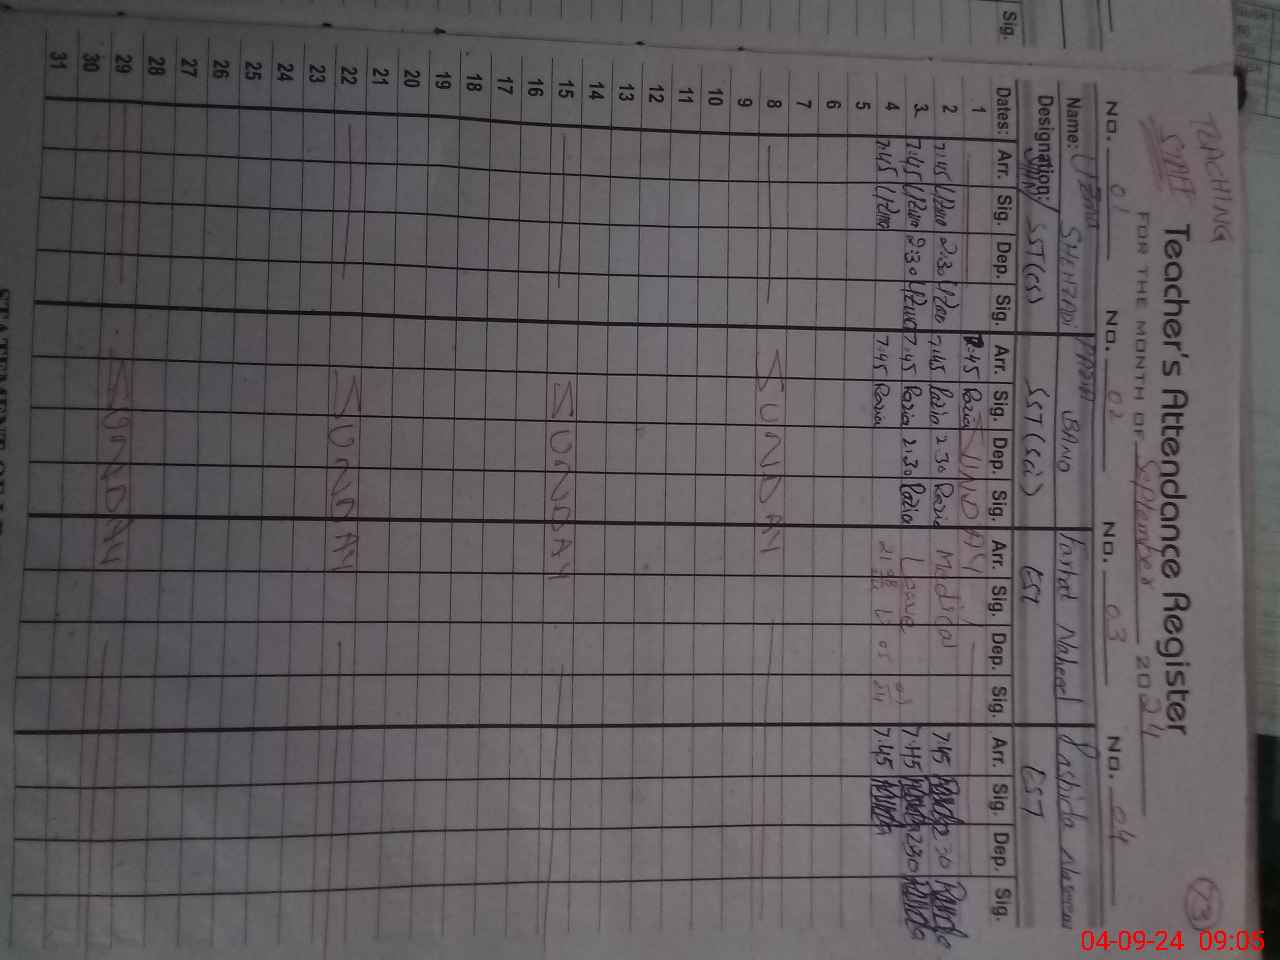 TEACHING
STAFF
73
Teacher's Attendance Register
FOR THE MONTH OF September 2024
No. 01 No. 02 No. 03 No. 04
Name: Uzma SHEHZADI RAZIA BANO Farhat Naheed Rashida Nasreen
Designation: SST(CS) SST(Sci) EST EST
Dates: Arr. Sig. Dep. Sig. Arr. Sig. Dep. Sig. Arr. Sig. Dep. Sig. Arr. Sig. Dep. Sig.
Sig.
1 7.45 Razia SUNDAY
2 7:45 Uzma 2:30 Uzma 7.45 Razia 2.30 Razia Medical 7.45 2 30
3 7:45 Uzma 2:30 Uzma 7.45 Razia 2:30 Razia Leave 7.45 2 30
4 7.45 Uzma 7.45 Razia 7.45
5
6
7
8 SUNDAY
9
10
11
12
13
14
15 SUNDAY
16
17
18
19
20
21
22 SUNDAY
23
24
25
26
27
28
29 SUNDAY
30
31
STATEMENT OF
04-09-24 09:05